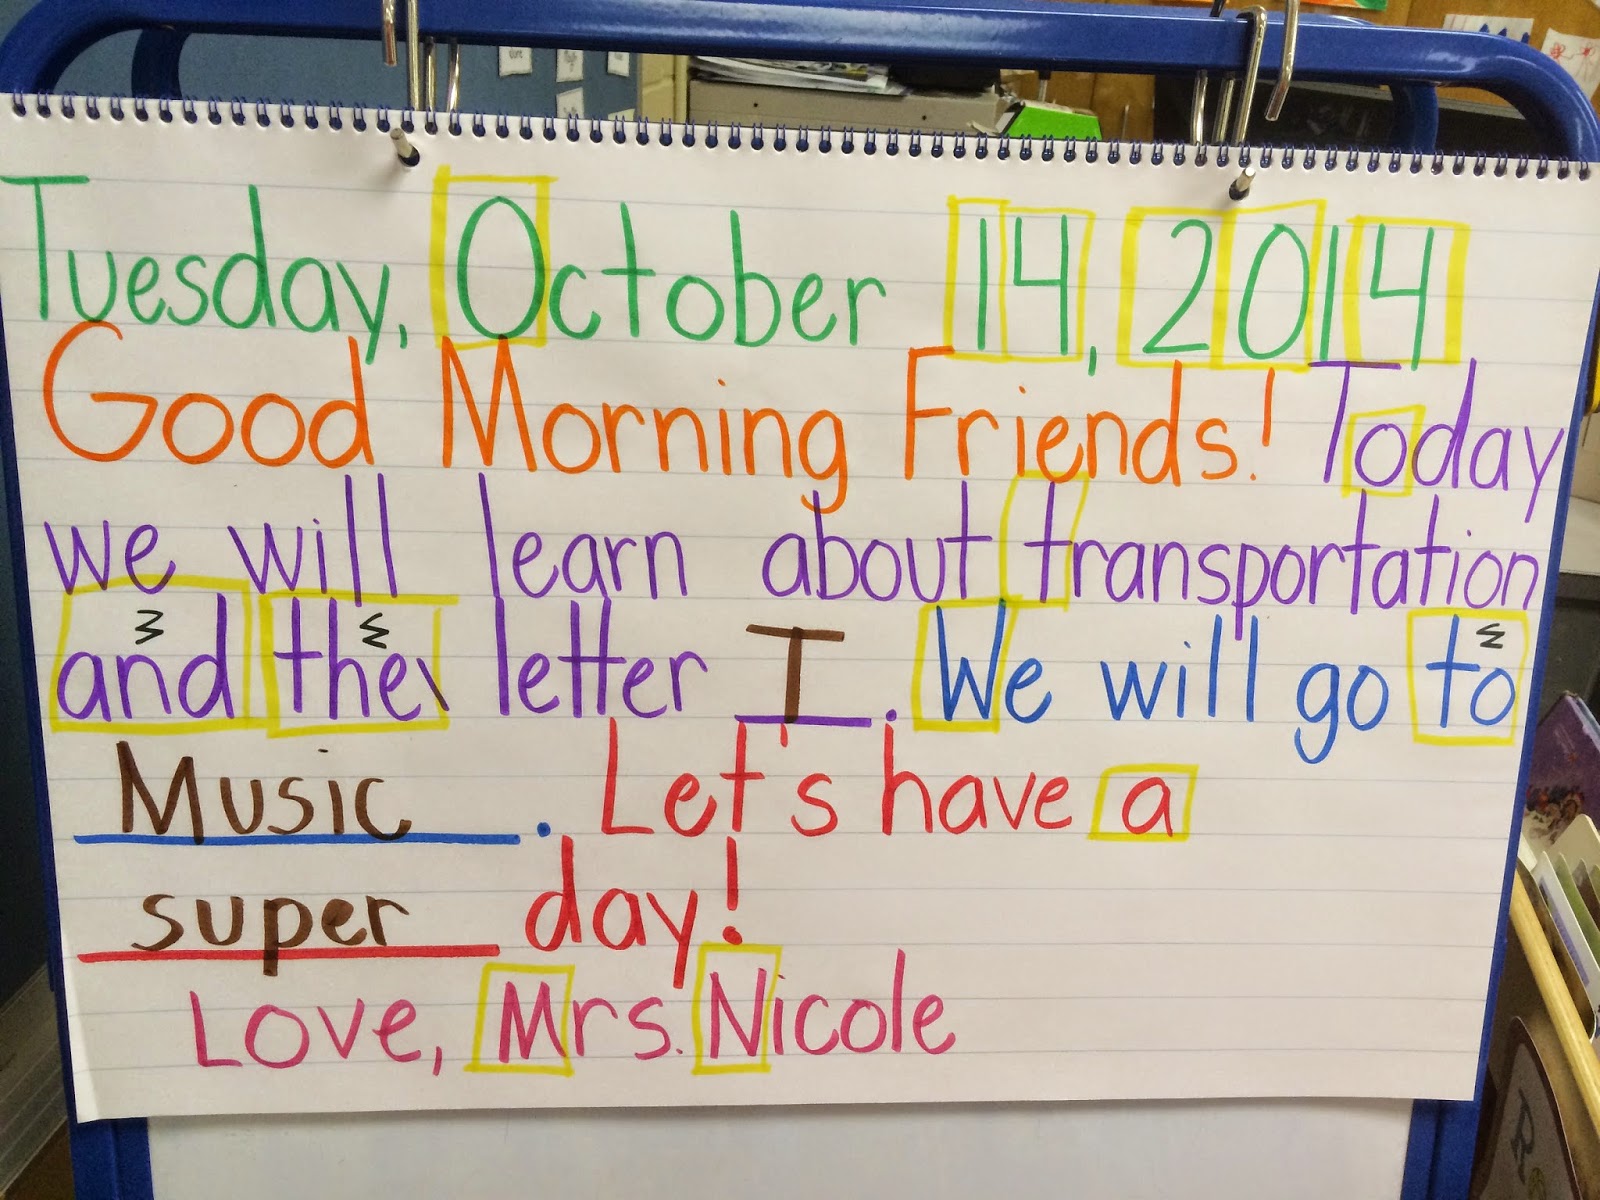 Tuesday, October 14, 2014
Good Morning Friends! Today
we will learn about transportation
and the letter I. We will go to
Music. Let's have a
super day!
Love, Mrs. Nicole